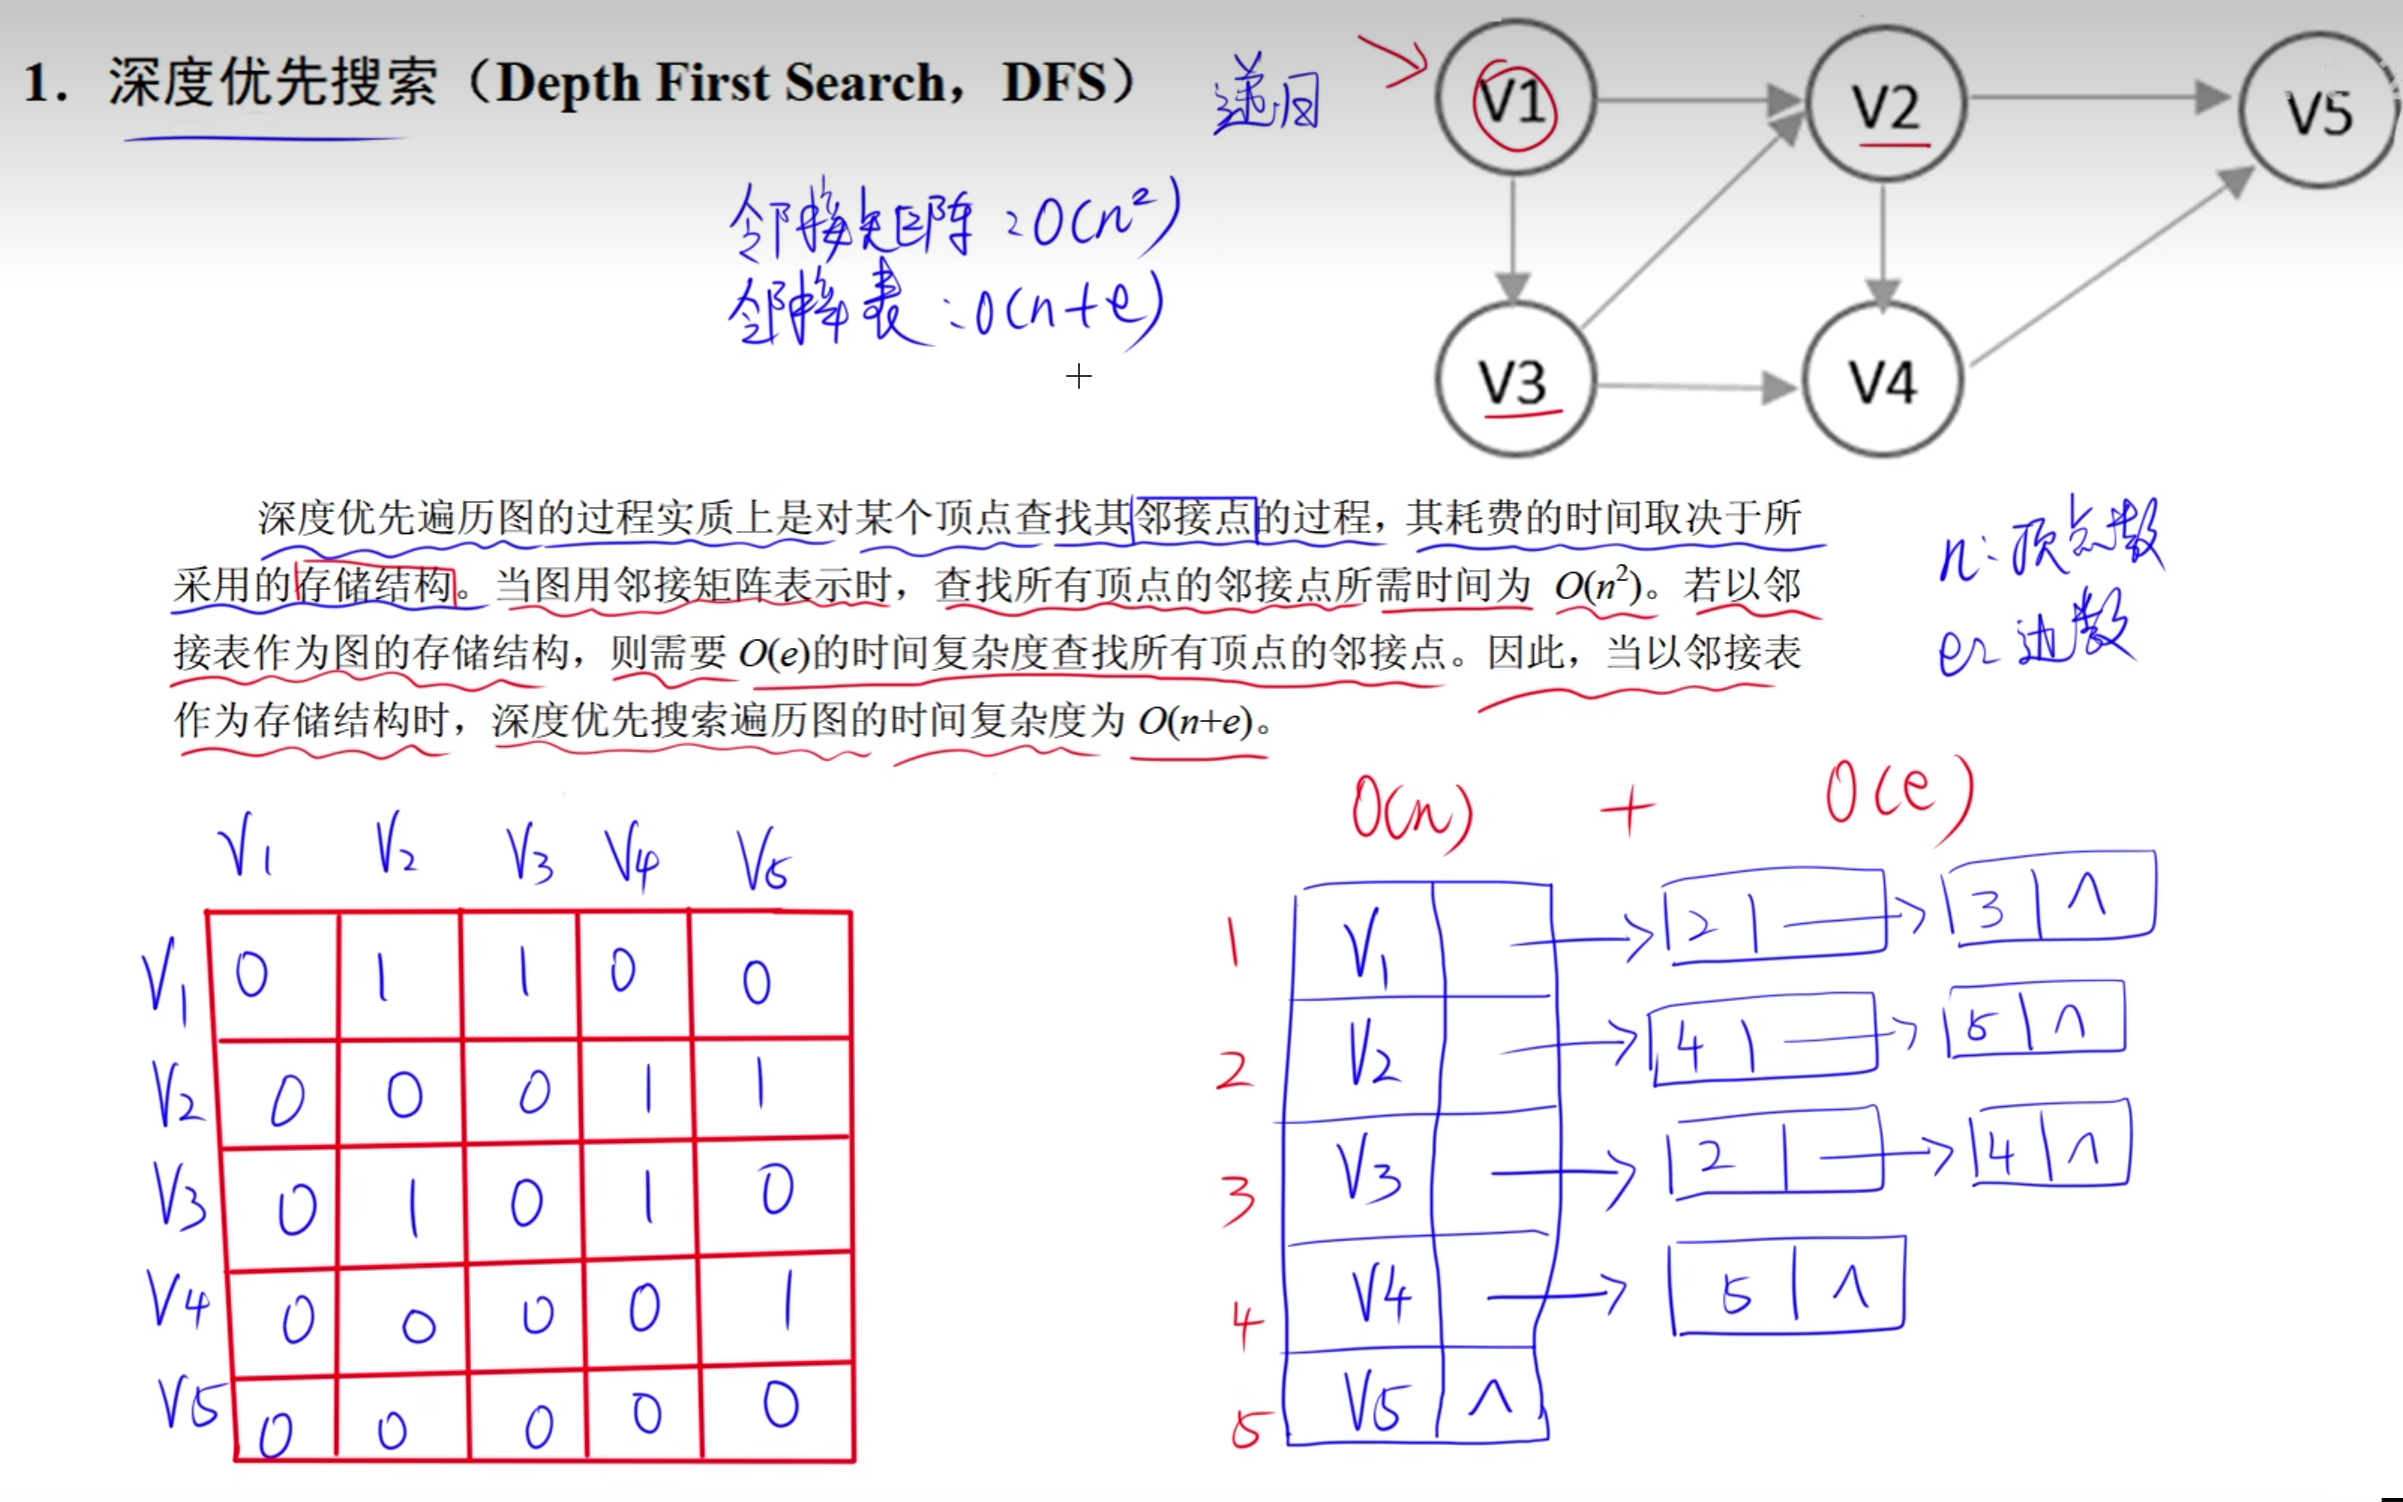 1. 深度优先搜索（Depth First Search，DFS）
递归
邻接矩阵：O(n²)
邻接表：O(n+e)
V1
V2
V5
V3
V4
深度优先遍历图的过程实质上是对某个顶点查找其邻接点的过程，其耗费的时间取决于所
采用的存储结构。当图用邻接矩阵表示时，查找所有顶点的邻接点所需时间为 O(n²)。若以邻
接表作为图的存储结构，则需要 O(e)的时间复杂度查找所有顶点的邻接点。因此，当以邻接表
作为存储结构时，深度优先搜索遍历图的时间复杂度为 O(n+e)。
n：顶点数
e：边数
V1 V2 V3 V4 V5
V1 0 1 1 0 0
V2 0 0 0 1 1
V3 0 1 0 1 0
V4 0 0 0 0 1
V5 0 0 0 0 0
O(n) + O(e)
1 V1 2 3 ∧
2 V2 4 5 ∧
3 V3 2 4 ∧
4 V4 5 ∧
5 V5 ∧